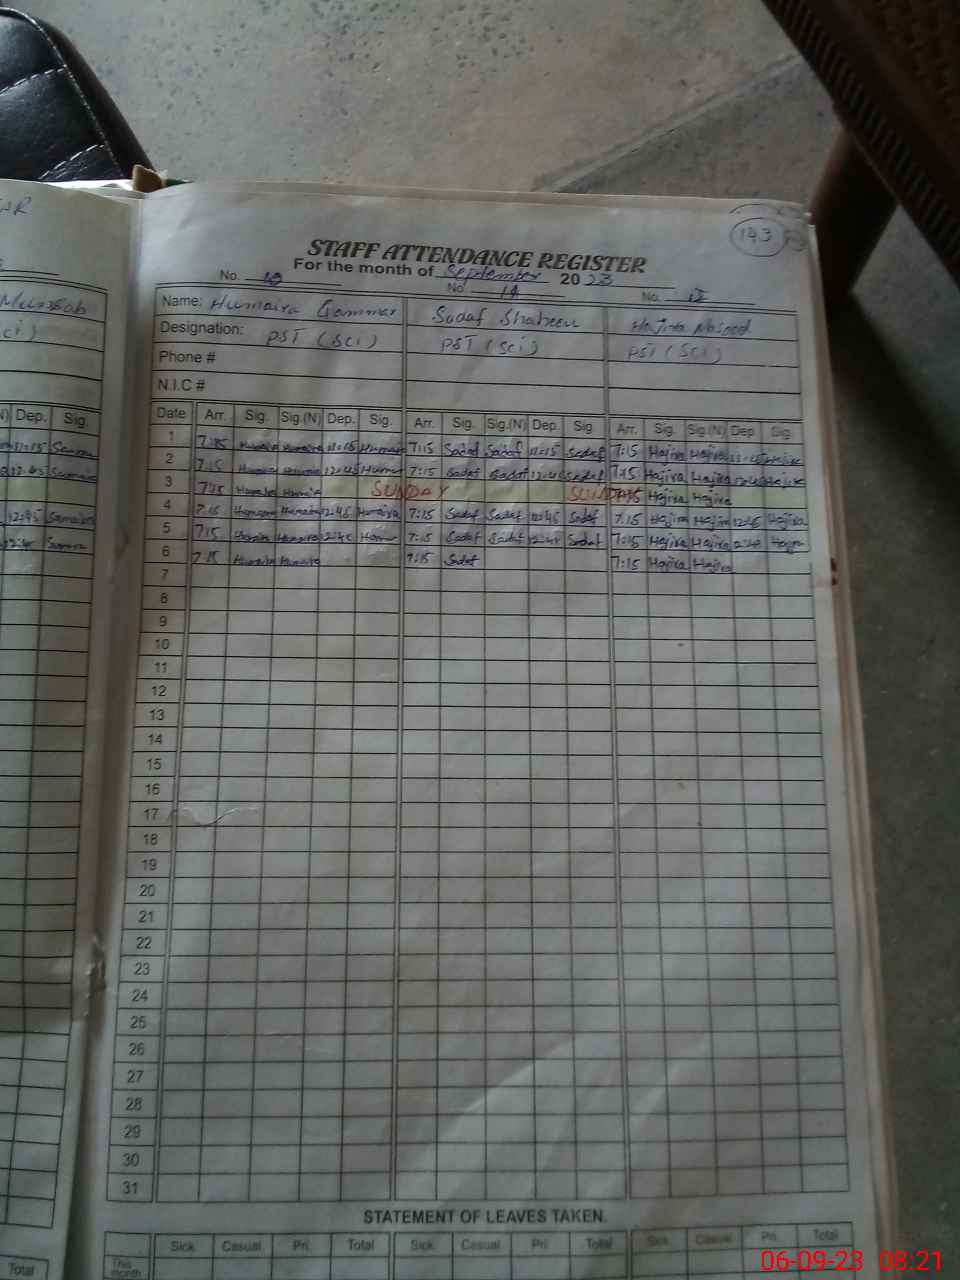 143
STAFF ATTENDANCE REGISTER
For the month of September 2023
No. 10 No. 11 No. 12
Name: Humaira Sadaf Shaheen Hajira
Designation: PST (Sci) PST (Sci) PST (Sci)
Phone #
N.I.C #
Date Arr. Sig. Sig.(N) Dep. Sig. Arr. Sig. Sig.(N) Dep. Sig. Arr. Sig. Sig.(N) Dep. Sig.
1 7:15 Humaira Humaira 11:15 Humaira 7:15 Sadaf Sadaf 11:15 Sadaf 7:15 Hajira Hajira Hajira
2 7:15 Humaira Humaira 12:45 Humaira 7:15 Sadaf Sadaf 12:45 Sadaf 7:15 Hajira Hajira 12:45 Hajira
3 7:15 Humaira Humaira SUNDAY SUNDAY 7:15 Hajira Hajira
4 7:15 Humaira Humaira 12:45 Humaira 7:15 Sadaf Sadaf 12:45 Sadaf 7:15 Hajira Hajira 12:45 Hajira
5 7:15 Humaira Humaira 12:45 7:15 Sadaf Sadaf 12:45 Sadaf 7:15 Hajira Hajira 12:45 Hajira
6 7:15 Humaira Humaira 7:15 Sadaf 7:15 Hajira Hajira
7
8
9
10
11
12
13
14
15
16
17
18
19
20
21
22
23
24
25
26
27
28
29
30
31
STATEMENT OF LEAVES TAKEN.
Sick Casual Pri. Total Sick Casual Pri. Total Sick Casual Pri. Total
This month
Dep. Sig.
Total
06-09-23 08:21